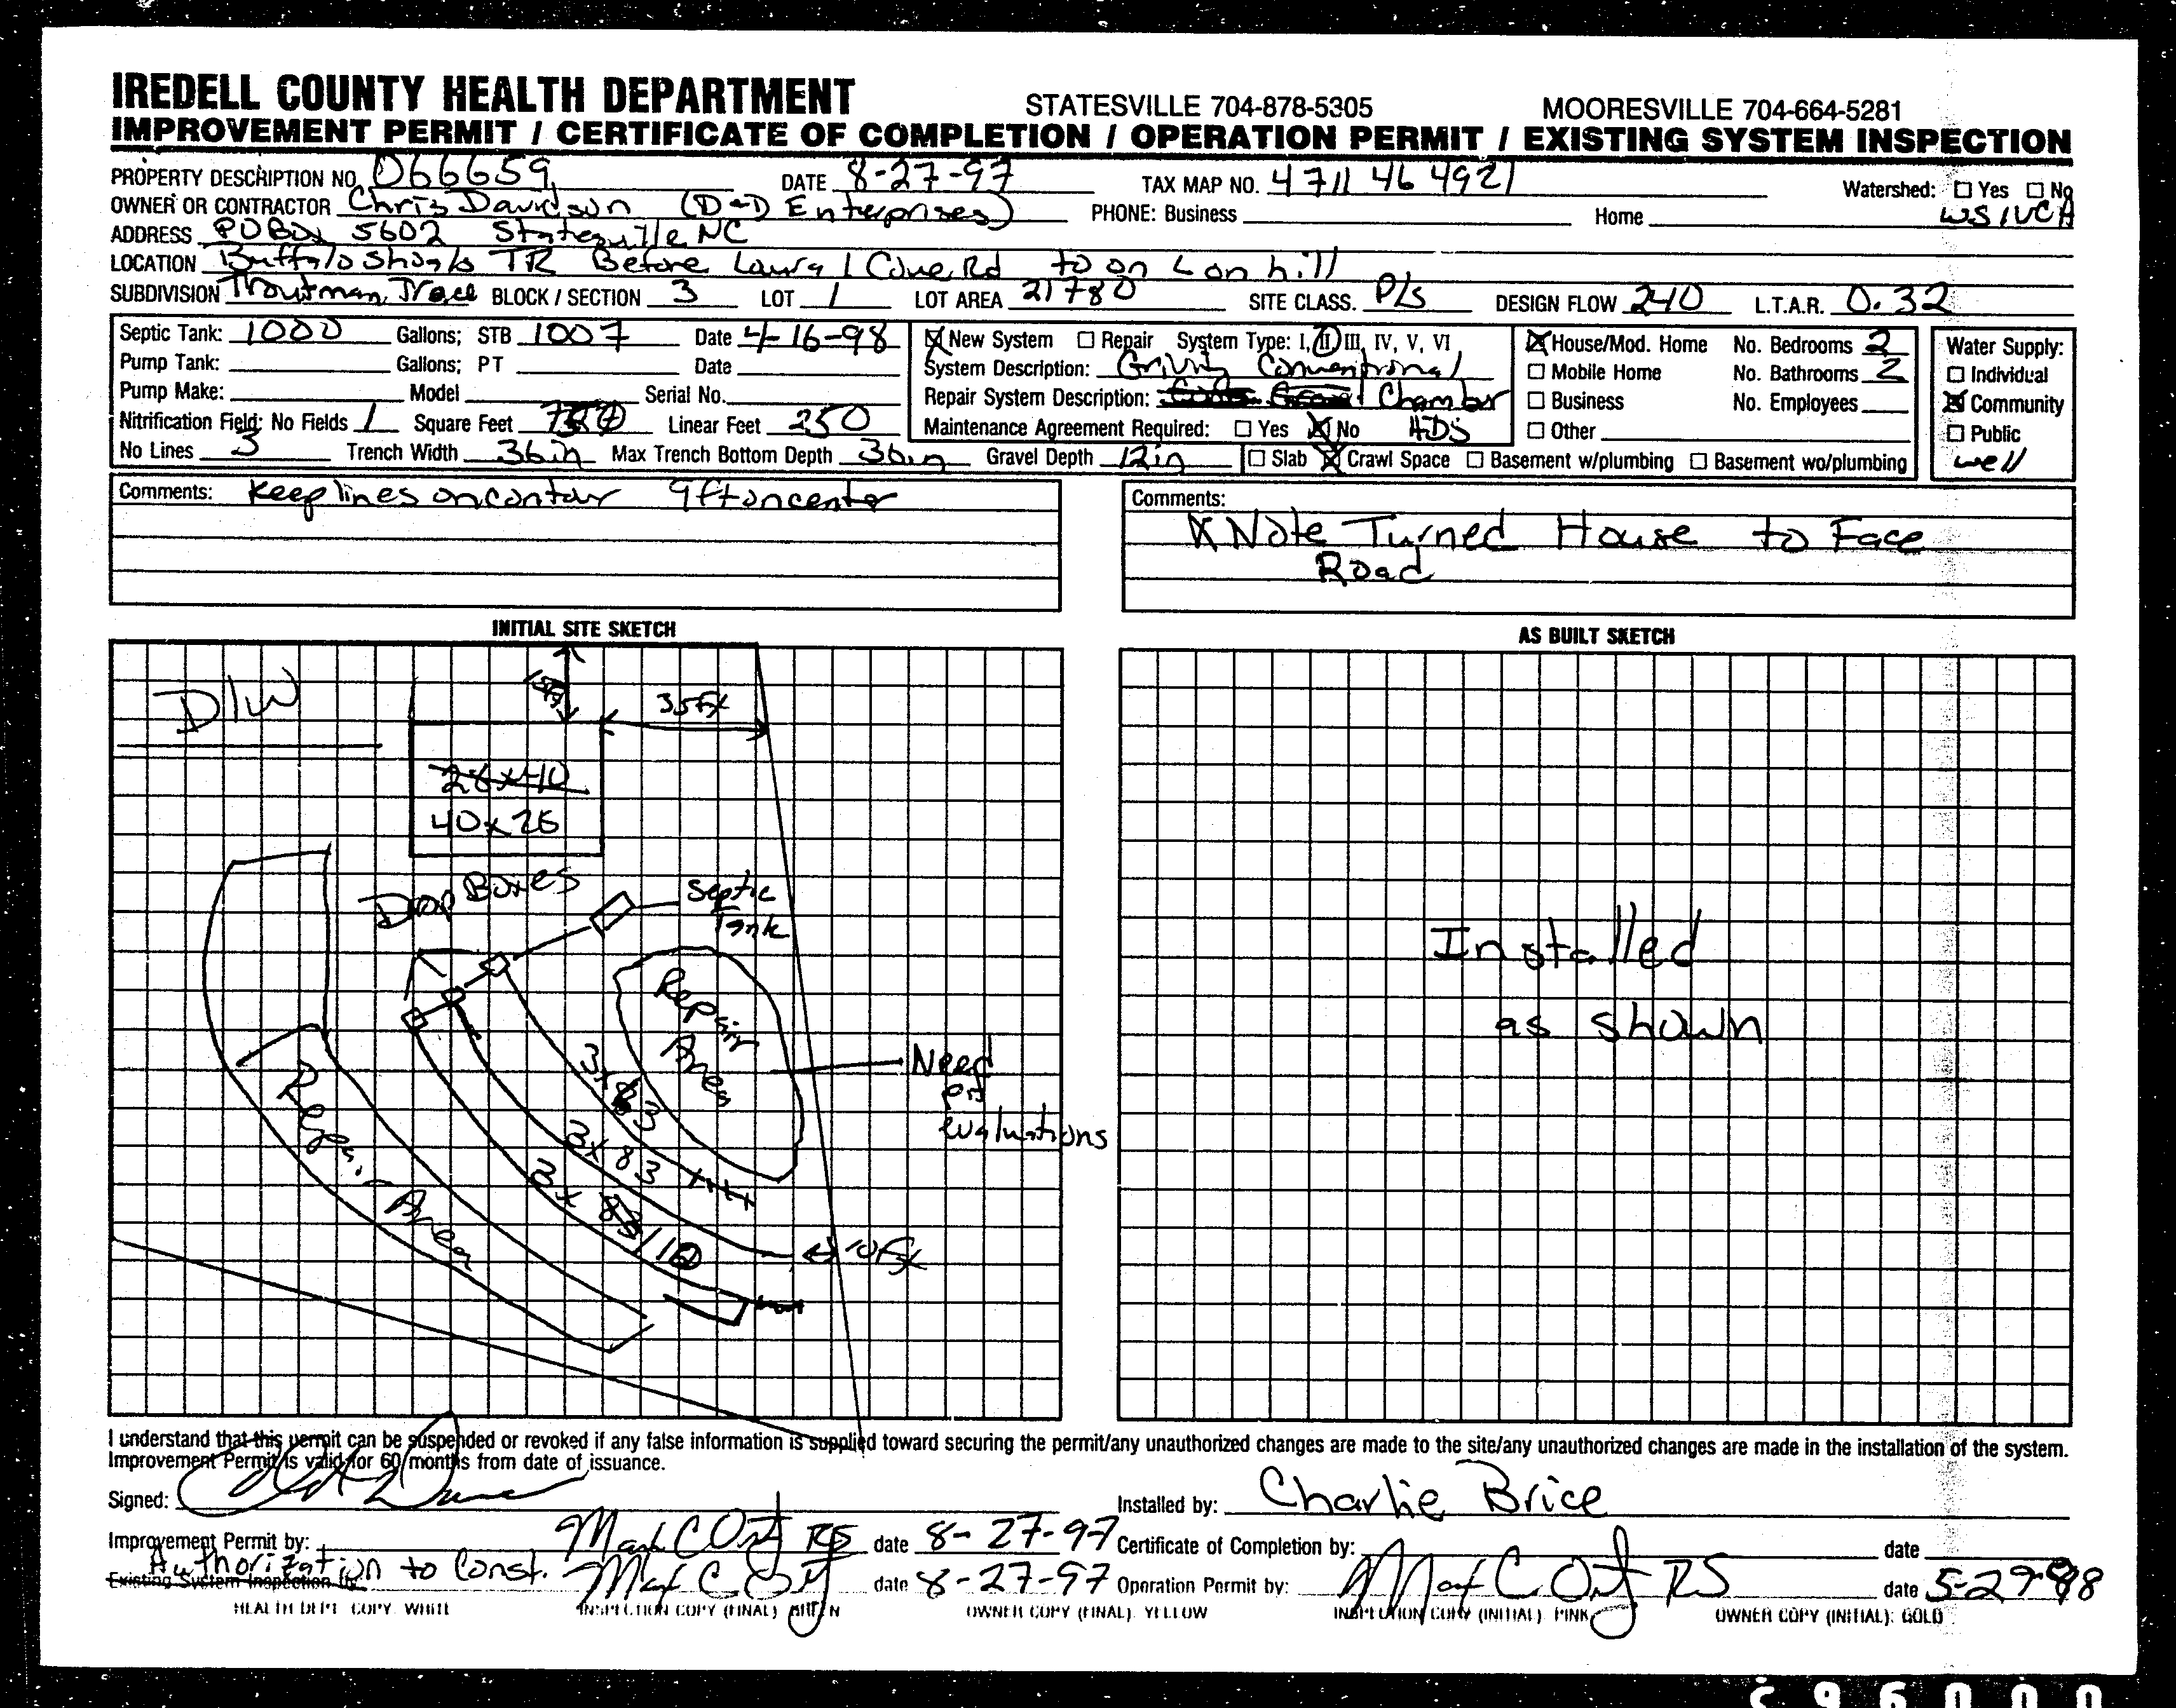 IREDELL COUNTY HEALTH DEPARTMENT STATESVILLE 704-878-5305 MOORESVILLE 704-664-5281
IMPROVEMENT PERMIT / CERTIFICATE OF COMPLETION / OPERATION PERMIT / EXISTING SYSTEM INSPECTION
PROPERTY DESCRIPTION NO. 066659 DATE 8-27-97 TAX MAP NO. 4711 46 4921 Watershed: ☐ Yes ☐ No
OWNER OR CONTRACTOR Chris Davidson (D+D Enterprises) PHONE: Business Home WSIVCA
ADDRESS POBox 5602 Statesville NC
LOCATION Buffalo Shoals TR Before Laural Cove Rd to on L on hill
SUBDIVISION Troutman Trace BLOCK / SECTION 3 LOT 1 LOT AREA 21780 SITE CLASS. P/s DESIGN FLOW 240 L.T.A.R. 0.32
Septic Tank: 1000 Gallons; STB 1007 Date 4-16-98 ☒ New System ☐ Repair System Type: I, II, III, IV, V, VI ☒ House/Mod. Home No. Bedrooms 2 Water Supply:
Pump Tank: Gallons; PT Date System Description: Conventional ☐ Mobile Home No. Bathrooms 2 ☐ Individual
Pump Make: Model Serial No. Repair System Description: Chamber ☐ Business No. Employees ☒ Community
Nitrification Field: No Fields 1 Square Feet Linear Feet 250 Maintenance Agreement Required: ☐ Yes ☒ No ADS ☐ Other ☐ Public
No Lines 3 Trench Width 36in Max Trench Bottom Depth 36in Gravel Depth 12in ☐ Slab ☒ Crawl Space ☐ Basement w/plumbing ☐ Basement wo/plumbing well
Comments: Keep lines on contour 9ft on center
Comments:
X Note Turned House to Face
Road
INITIAL SITE SKETCH
AS BUILT SKETCH
D/W
15ft
35Ft
28x40
40x26
Drop Boxes
Septic
Tank
Repair
Area
Need
evaluations
3x83
3x83
3x
Repair Area
10Ft
Installed
as shown
I understand that this permit can be suspended or revoked if any false information is supplied toward securing the permit/any unauthorized changes are made to the site/any unauthorized changes are made in the installation of the system.
Improvement Permit is valid for 60 months from date of issuance.
Signed: Installed by: Charlie Brice
Improvement Permit by: RS date 8-27-97 Certificate of Completion by: date
Authorization to Const.
Existing System Inspection by: date 8-27-97 Operation Permit by: RS date 5-29-98
HEALTH DEPT. COPY: WHITE INSPECTION COPY (FINAL) OWNER COPY (FINAL): YELLOW INSPECTION COPY (INITIAL): PINK OWNER COPY (INITIAL): GOLD